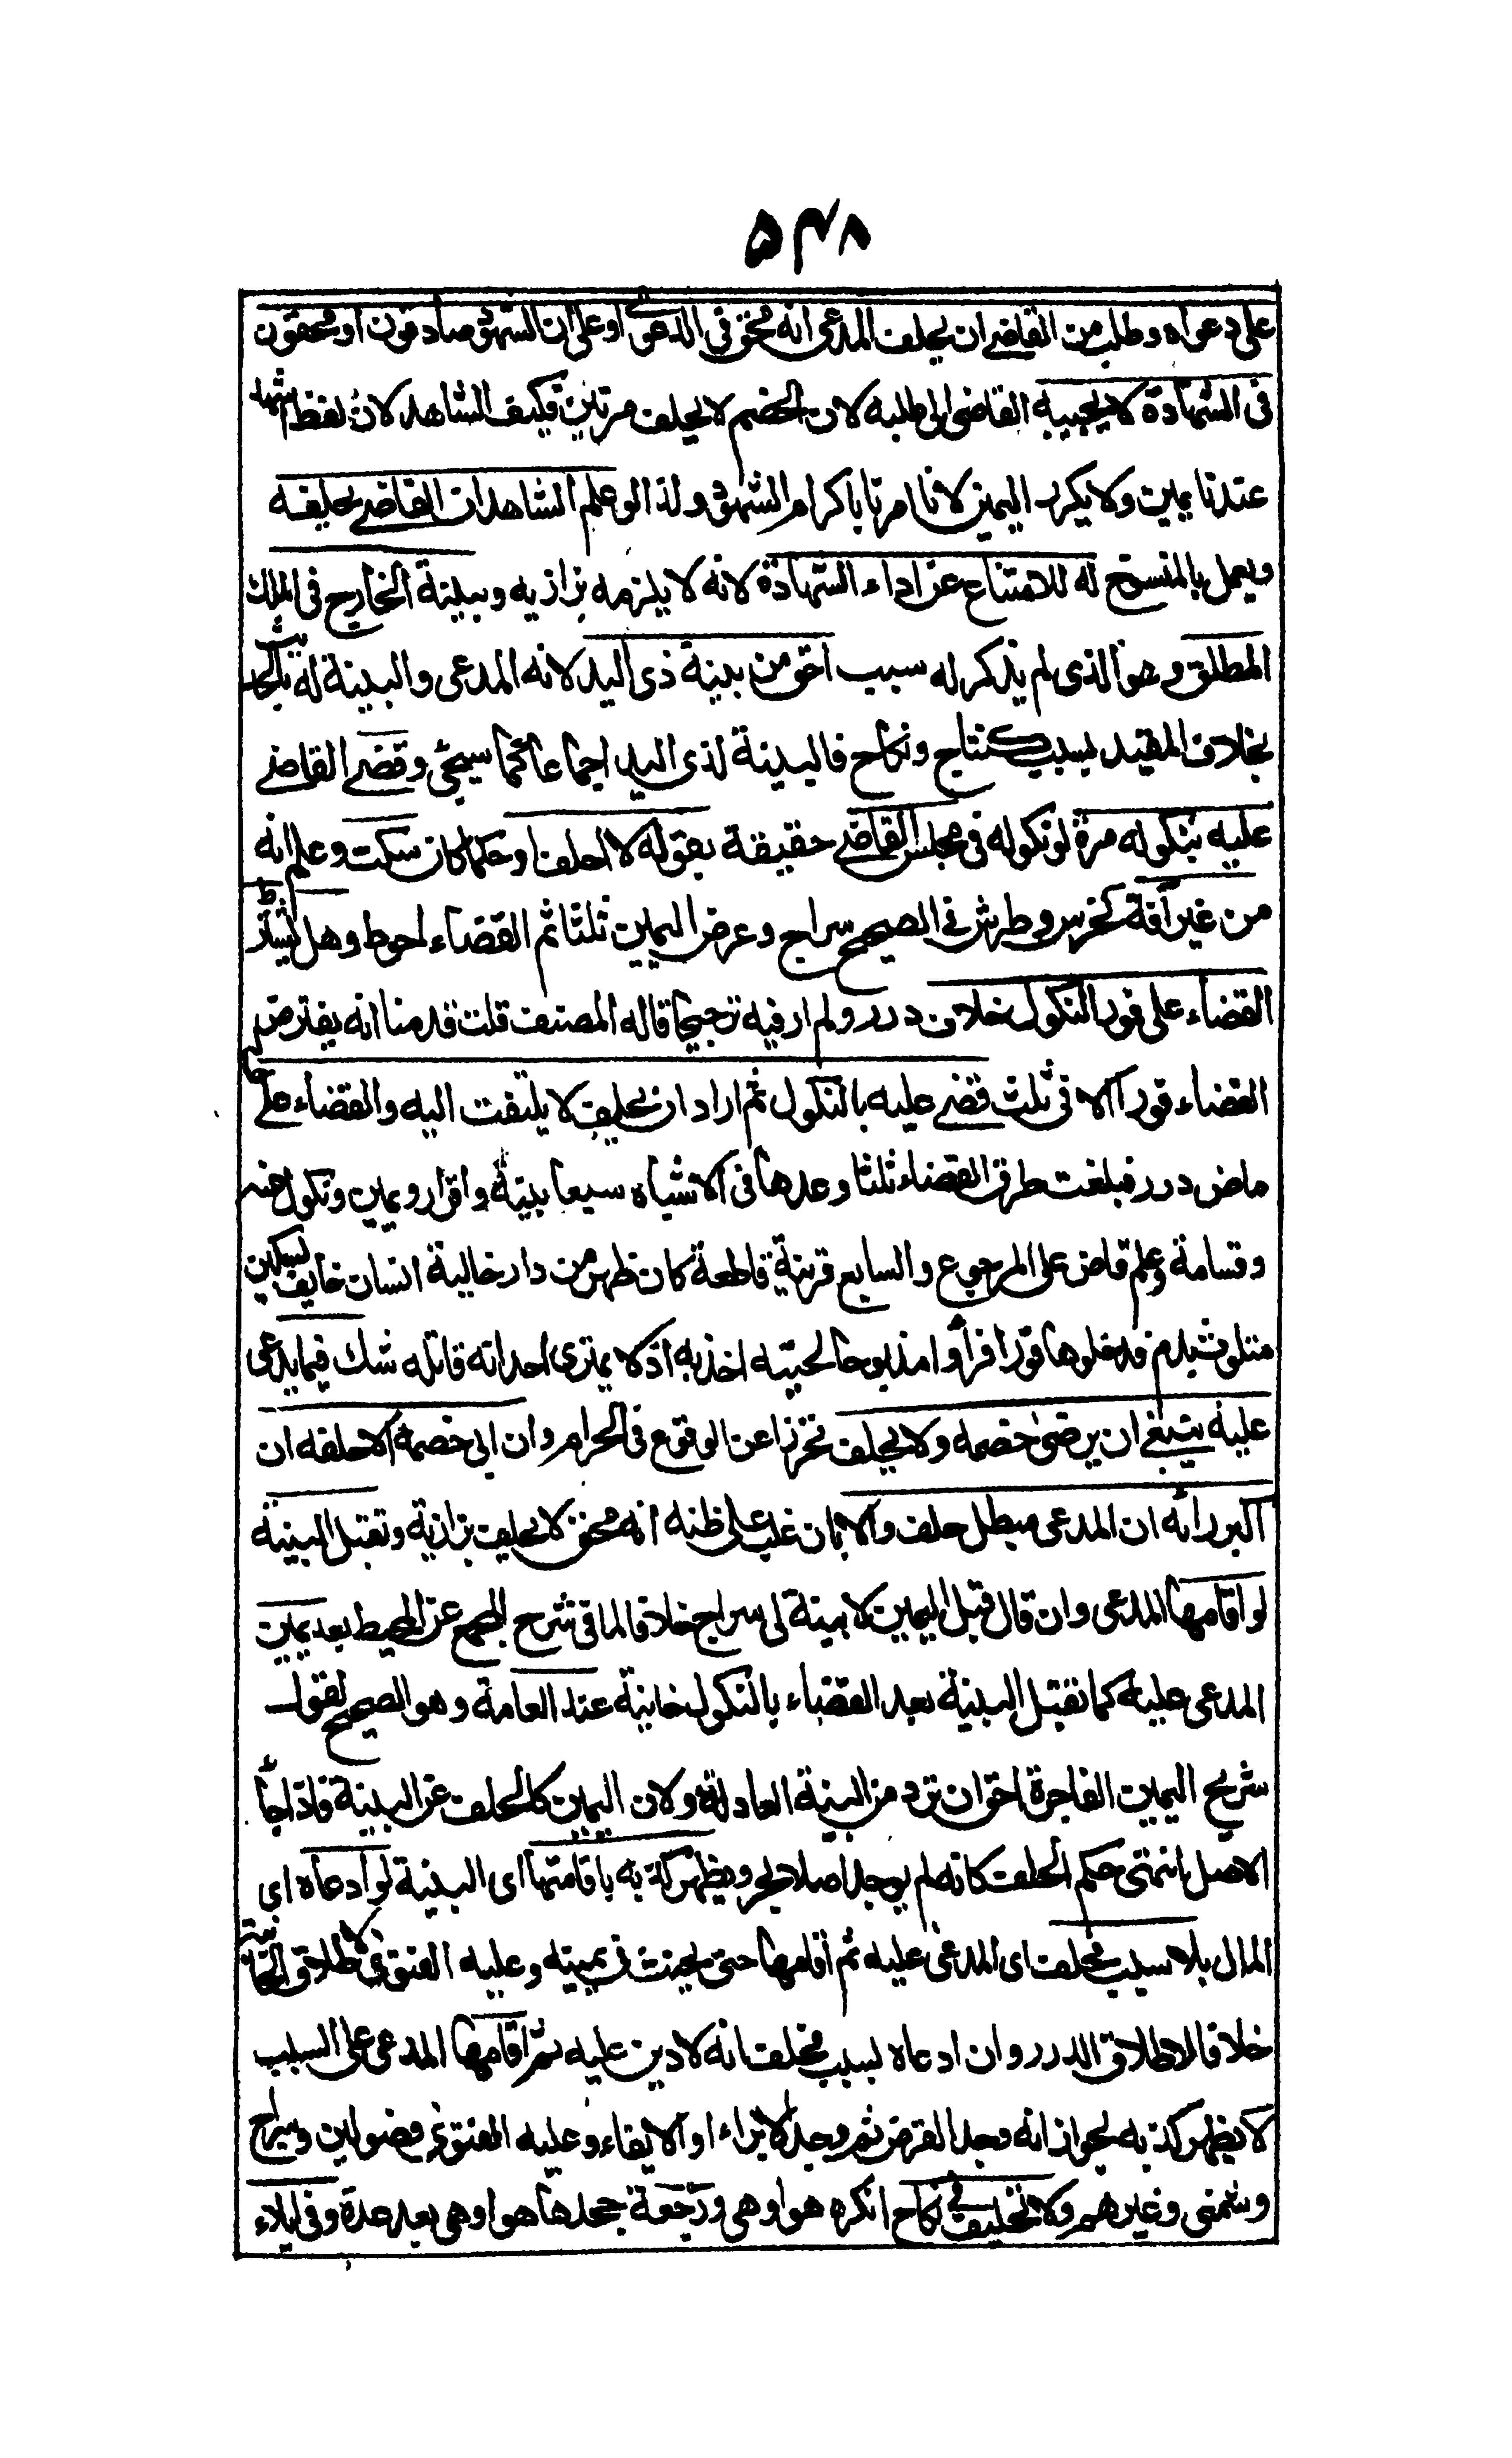 ٥٣٨
على دعواه وطلب من القاضے ان يحلف المدعى انه محق فى الدعوى او على ان الشهود صادقون او محقون
فى الشهادة لا يجيبه القاضى الى طلبه لان الخصم لا يحلف مرتين فكيف الشاهد لان لفظ اشهد
عندنا يمين ولا يكرر اليمين لانا امرنا باكرام الشهود ولذا لو علم الشاهد ان القاضے يحلفه
ويعمل بالمنسوخ له الامتناع عن اداء الشهادة لانه لا يلزمه بزازيه وبينة الخارج فى الملك
المطلق وهو الذى لم يذكر له سبب احق من بينة ذى اليد لانه المدعى والبينة له بالحديث
بخلاف المقيد بسبب كنتاج ونكاح فالبينة لذى اليد اجماعا كما سيجئ وقضے القاضے
عليه بنكوله مرة لو نكوله فى مجلس القاضے حقيقة بقوله لا احلف او حكما كان سكت وعلم انه
من غير آفة كخرس وطرش فى الصحيح سراج وعرض اليمين ثلثا ثم القضاء احوط وهل يشترط
القضاء على فور النكول خلاف درر ولم ار فيه ترجيحا قاله المصنف قلت قدمنا انه يفترض
القضاء فورا الا فى ثلث قضے عليه بالنكول ثم اراد ان يحلف لا يلتفت اليه والقضاء على حاله
ماض درر فبلغت طرق القضاء ثلثا وعدها فى الاشباه سبعا بينة واقرار ويمين ونكول عنه
وقسامة وعلم قاض على المرجوع والسابع قرينة قاطعة كان ظهر من دار خالية انسان خايف بسكين
متلوث بدم فدخلوها فورا فرأوا مذبوحا لحينه اخذ به اذ لا يمترى احد انه قاتله شك فيما يدعى
عليه ينبغے ان يرضى خصمه ولا يحلف تحرزا عن الوقوع فى الحرام وان ابى خصمه الا حلفه ان
اكبر رائه ان المدعى مبطل حلف والا بان غلب على ظنه انه محق لا يحلف بزازية وتقبل البينة
لو اقامها المدعى وان قال قبل اليمين لا بينة لى سراج خلافا لما فى شرح المجمع عن المحيط بعد يمين
المدعى عليه كما تقبل البينة بعد القضاء بالنكول خانية عند العامة وهو الصحيح لقول
شريح اليمين الفاجرة احق ان ترد من البينة العادلة ولان اليمين كالخلف عن البينة فاذا جاء
الاصل انتهى حكم الخلف كانه لم يوجد اصلا بحر ويظهر كذبه باقامتها اى البينة لو ادعاه اى
المال بلا سبب فحلف اى المدعى عليه ثم اقامها حتى يحنث فى يمينه وعليه الفتوى طلاق الخانية
خلافا لاطلاق الدرر وان ادعاه بسبب فحلف انه لا دين عليه ثم اقامها المدعى على السبب
لا يظهر كذبه لجواز انه وجد القرض ثم وجد الابراء او الايفاء وعليه الفتوى فصولين وسراج
وشمنى وغيرهم ولا تحليف فى نكاح انكره هو او هى ورجعة جحدها هو او هى بعد عدة وفى ايلاء